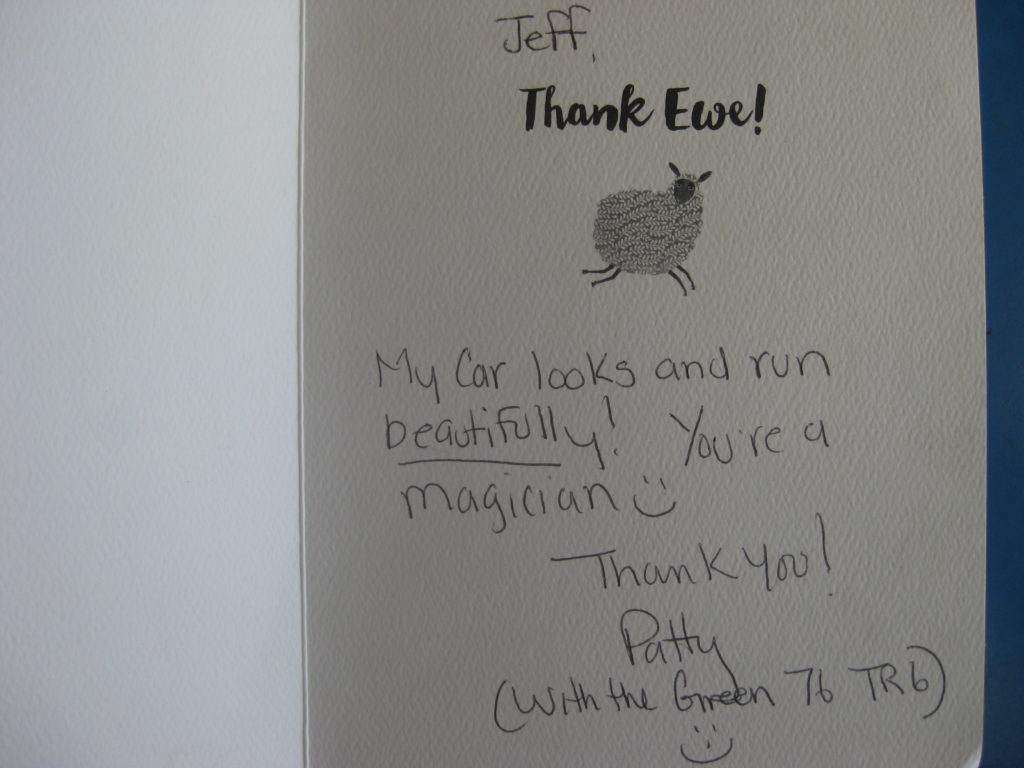 Jeff,
Thank Ewe!
My Car looks and run
beautifully! You're a
magician
Thank you!
Patty
(With the Green 76 TR6)